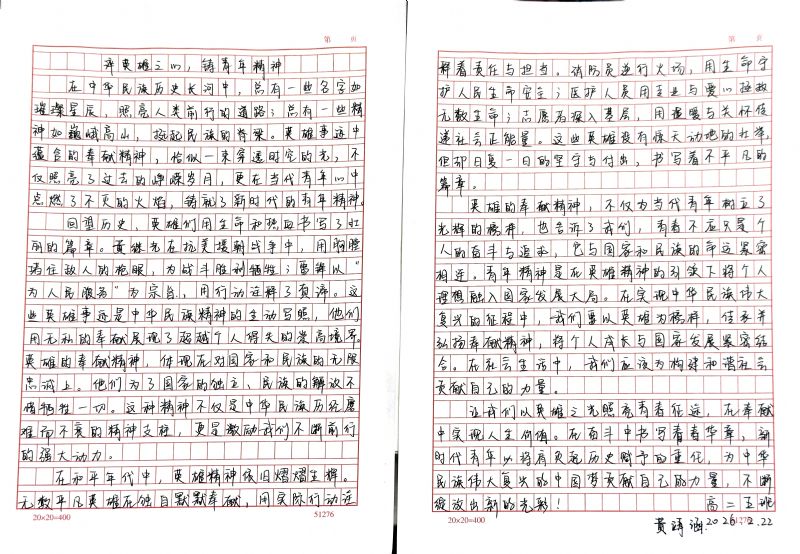 第 页
弃英雄之心，铸青年精神
在中华民族历史长河中，总有一些名字如
璀璨星辰，照亮人类前行的道路；总有一些精
神如巍峨高山，挺起民族的脊梁。英雄事迹中
蕴含的奉献精神，恰似一束穿透时空的光，不
仅照亮了过去的峥嵘岁月，更在当代青年心中
点燃了不灭的火焰，铸就了新时代的青年精神。
回望历史，英雄们用生命和热血书写了壮
丽的篇章。黄继光在抗美援朝战争中，用胸膛
堵住敌人的枪眼，为战斗胜利牺牲；雷锋以“
为人民服务”为宗旨，用行动诠释了真谛。这
些英雄事迹是中华民族精神的生动写照，他们
用无私的奉献展现了超越个人得失的崇高境界。
英雄的奉献精神，体现在对国家和民族的无限
忠诚上。他们为了国家的独立、民族的解放不
惜牺牲一切。这种精神不仅是中华民族历经磨
难而不衰的精神支柱，更是激励我们不断前行
的强大动力。
在和平年代中，英雄精神依旧熠熠生辉。
无数平凡英雄在独自默默奉献，用实际行动诠
20×20=400 51276
第 页
释着责任与担当。消防员逆行火场，用生命守
护人民生命安全；医护人员用专业与爱心拯救
无数生命；志愿者深入基层，用温暖与关怀传
递社会正能量。这些英雄没有惊天动地的壮举，
但却日复一日的坚守与付出，书写着不平凡的
篇章。
英雄的奉献精神，不仅为当代青年树立了
光辉的榜样，也告诉了我们，青春不应只是个
人的奋斗与追求，它与国家和民族的命运紧密
相连。青年精神是在英雄精神的引领下将个人
理想融入国家发展大局。在实现中华民族伟大
复兴的征程中，我们要以英雄为榜样，传承并
弘扬奉献精神，将个人成长与国家发展紧密结
合。在社会生活中，我们应该为构建和谐社会
贡献自己的力量。
让我们以英雄之光照亮青春征途，在奉献
中实现人生价值。在奋斗中书写青春华章，新
时代青年必将肩负起历史赋予的重任，为中华
民族伟大复兴的中国梦贡献自己的力量，不断
绽放出新的光彩！ 高二五班
20×20=400 51276
黄诗涵 2026.2.22